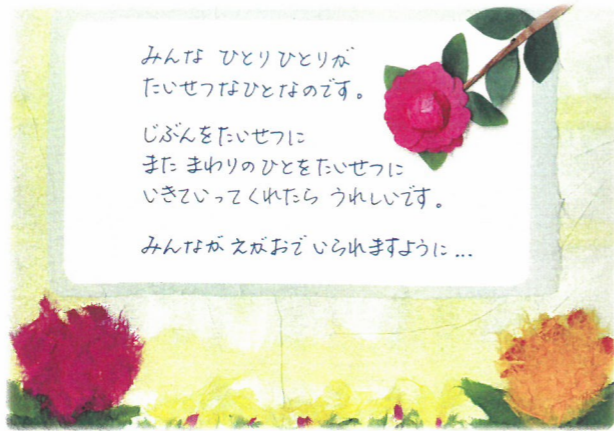 みんな ひとりひとりが
たいせつなひとなのです。
じぶんをたいせつに
また まわりのひとをたいせつに
いきていってくれたら うれしいです。
みんなが えがおで いられますように...